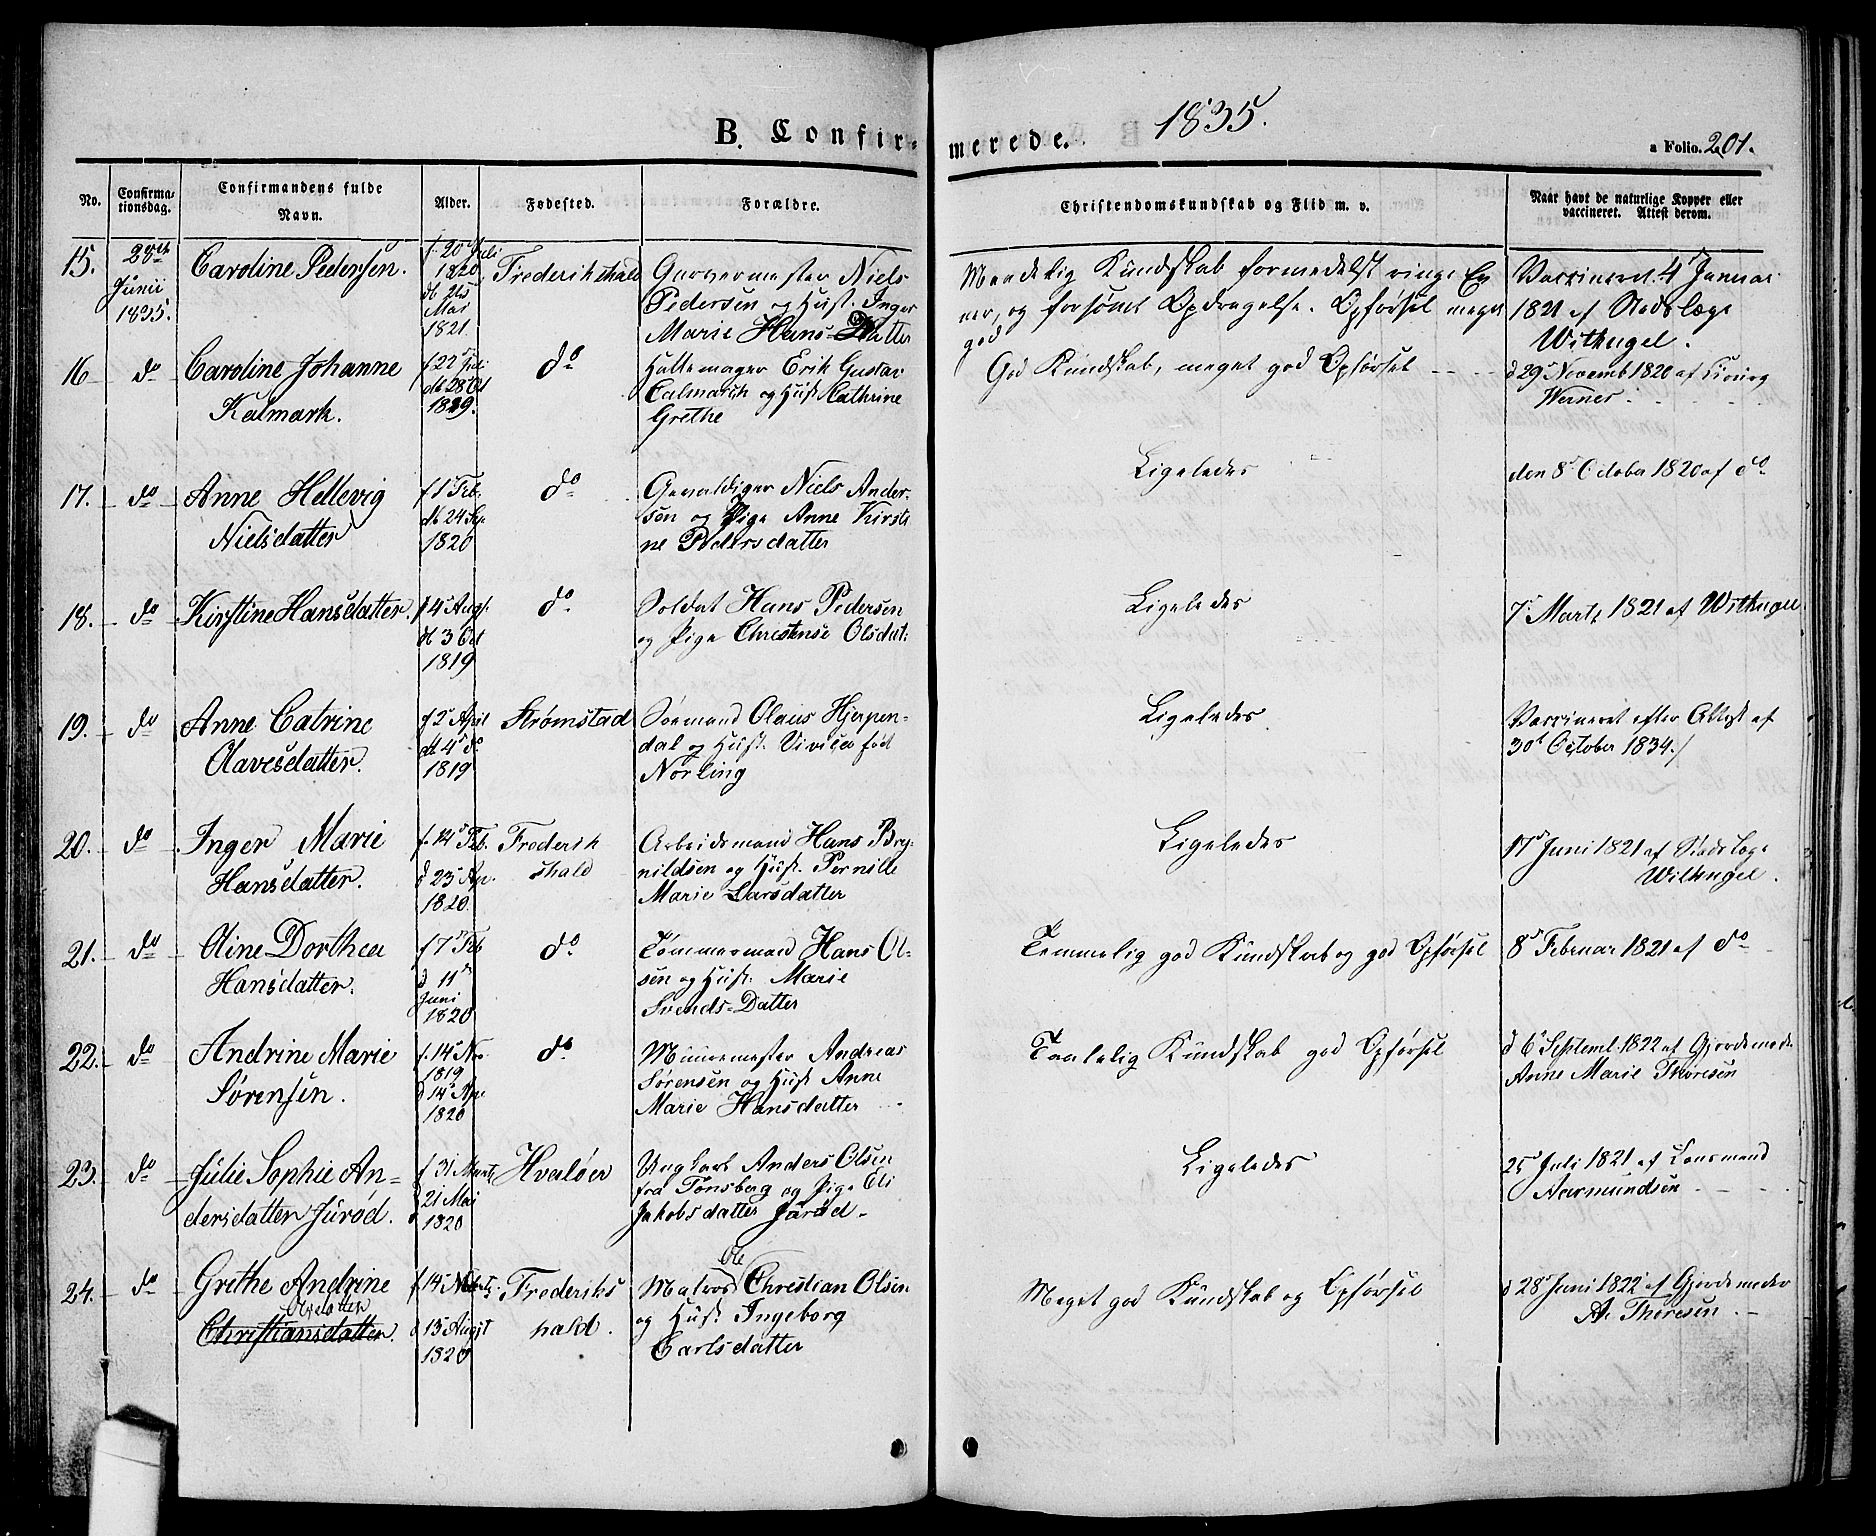 1835.
B. Confirmerede.
a Folio. 201.
No. Confirmationsdag. Confirmandens fulde Navn. Alder. Fødested. Forældre. Christendomskundskab og Flid m. v. Naar havt de naturlige Kopper eller vaccineret. Attest derom.
15. Junii 1835. Caroline Pedersen. f. 20 Juli 1820 Frederikshald Garvermester Niels Maadelig Kundskab formedelst ringe Ev Vaccineret 4 Januar
db 25 Mai 1821. Pedersen og Hust. Inger ner, og forsømt Opdragelse. Opførsel meget 1821 af Stadslæge
Marie Hans=Datter god Withugel.
16 do Caroline Johanne f 22 Juli do Hattemager Erik Gustav God Kundskab, meget god Opførsel d 29 Novemb 1820 af Chirurg
Kalmark. db 28 Oct 1819. Calmarck og Hust Cathrine Werner.
Grethe
17. do Anne Hellevig f 1 Feb. do Gevaldiger Niels Ander- Ligeledes den 8 October 1820 af do
Nielsdatter db 24 Sep. 1820 sen og Pige Anne Kirsti-
ne Pedersdatter
18. do Kirstine Hansdatter. f 4 Aug. do. Soldat Hans Pedersen Ligeledes 7 Marts 1821 af Withugel
db 3 Oct 1819 og Pige Christense Olsdat:
19. do Anne Catrine f 2 April Strømstad Sømand Olaus Hjerpen- Ligeledes. Vaccineret efter Attest af
Olavesdatter. db 4 do 1819 dal og Hust. født 30t October 1834./
Norling
20. do Inger Marie f. 14 Feb. Frederik Arbeidsmand Hans Bry- Ligeledes 17 Juni 1821 af Stadslæge
Hansdatter. d 23 Ap. 1820. shald nildsen og Hust. Pernille Withugel.
Marie Larsdatter
21. do Oline Dorthea f 7 Feb do. Tømmermand Hans Ol- Temmelig god Kundskab og god Opførsel 8 Februar 1821 af do
Hansdatter. d 11 Juni 1820 sen og Hust. Marie
Svends=Datter
22. do Andrine Marie f. 14 No. 1819 do. Muurmester Andreas Taalelig Kundskab god Opførsel d 6 Septemb. 1822 af Gjordemoder
Sørensen. d 14 Ap. 1820 Sørensen og Hust Anne Anne Marie Thoresen
Marie Hansdatter
23. do Julie Sophie An- f 31 Marts Hvaløer Ungkarl Anders Olsen Ligeledes 25 Juli 1821 af Lensmand
dersdatter Jurød. d 21 Mai 1820 fra Tønsberg og Pige Eli Aamundsen
Jakobsdatter Jurød.
24. do Grethe Andrine f 14 Marts Frederiks Matros Ole Christian Olsen Meget god Kundskab og Opførsel d 28 Juni 1822 af Gjordemoder
Olsdatter Christiansdatter. d 13 Augst 1820 hald. og Hust Ingeborg A. Thoresen.
Carlsdatter